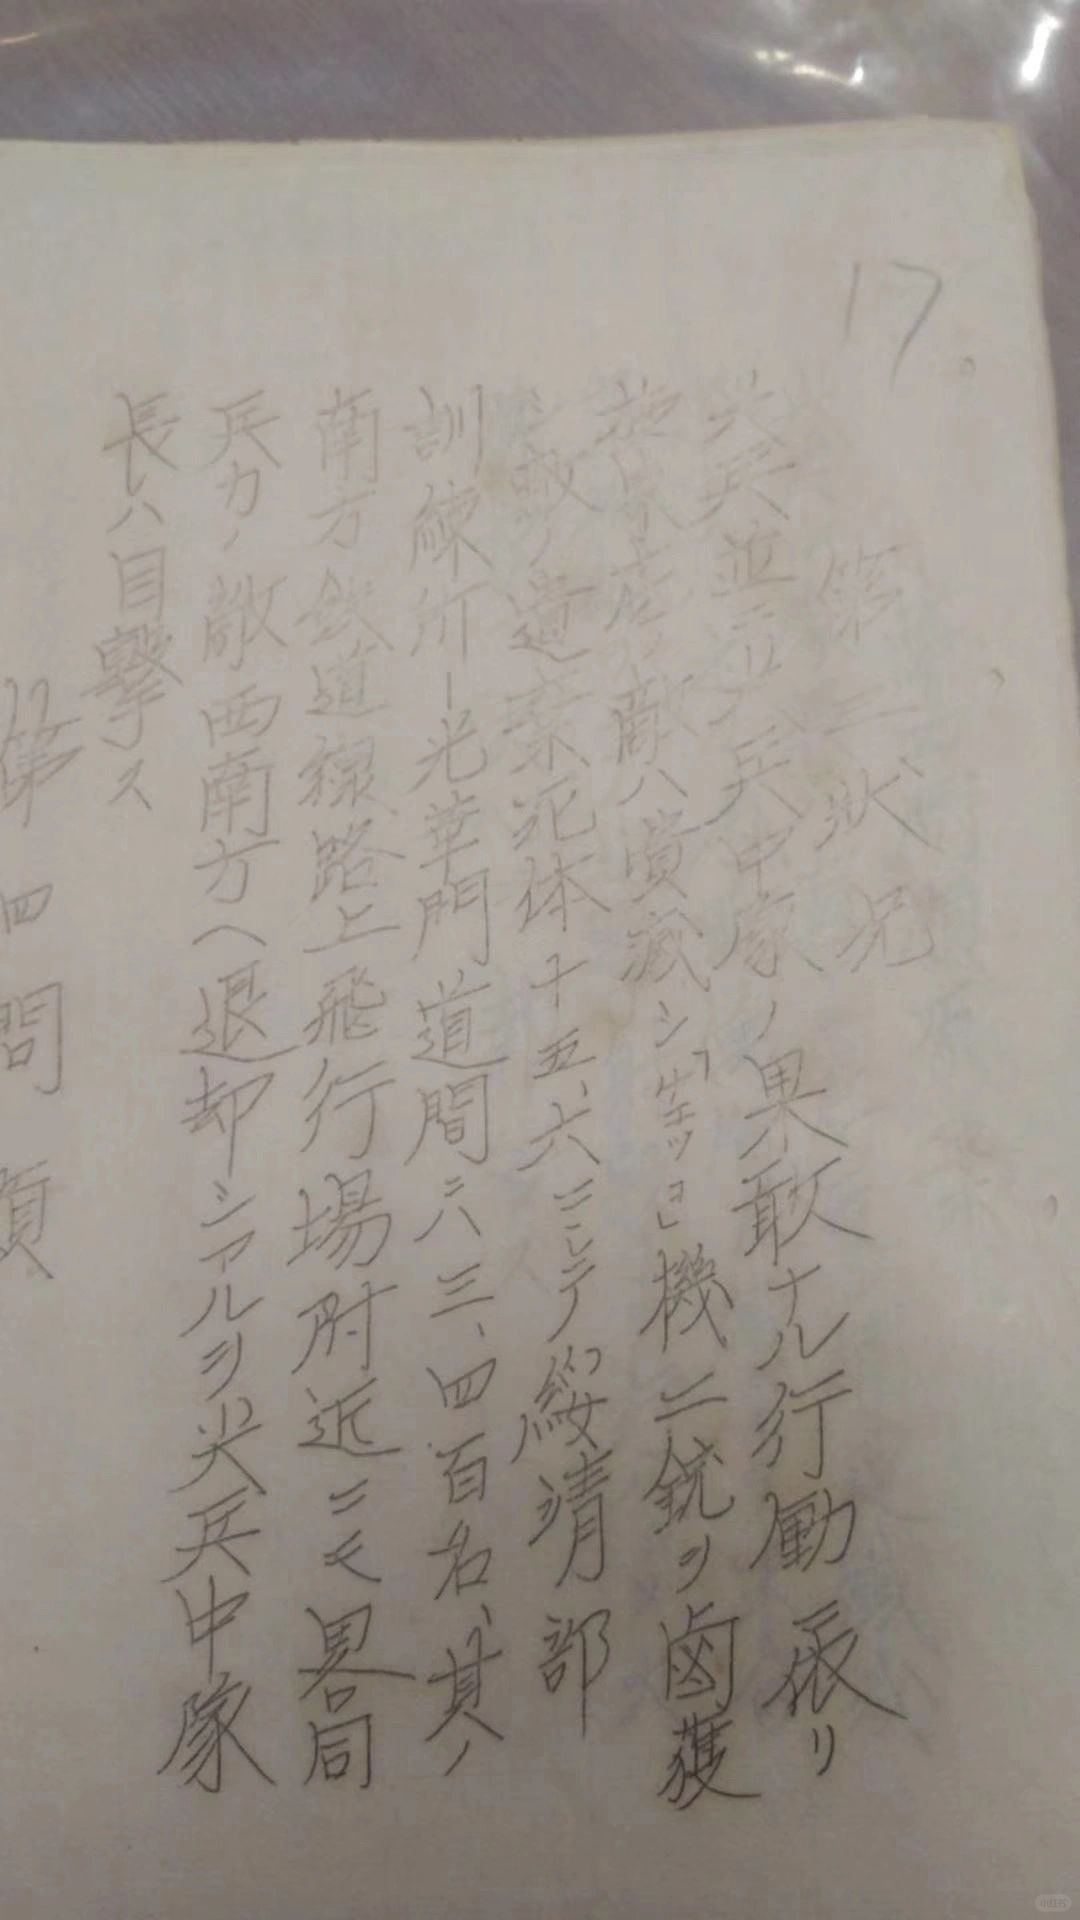 17.
第三状況
尖兵並ニ 兵中隊ノ果敢ナル行動振リ
敵ハ潰滅シ「チエツコ」機二銃ヲ鹵獲
敵ノ遺棄死体十五、六ニシテ綏靖部
訓練所ー光華門道間ニハ三、四百名、其ノ
南方鉄道線路上飛行場附近ニモ畧同
兵力ノ敵西南方ヘ退却シアルヲ尖兵中隊
長ハ目撃ス
第四問題